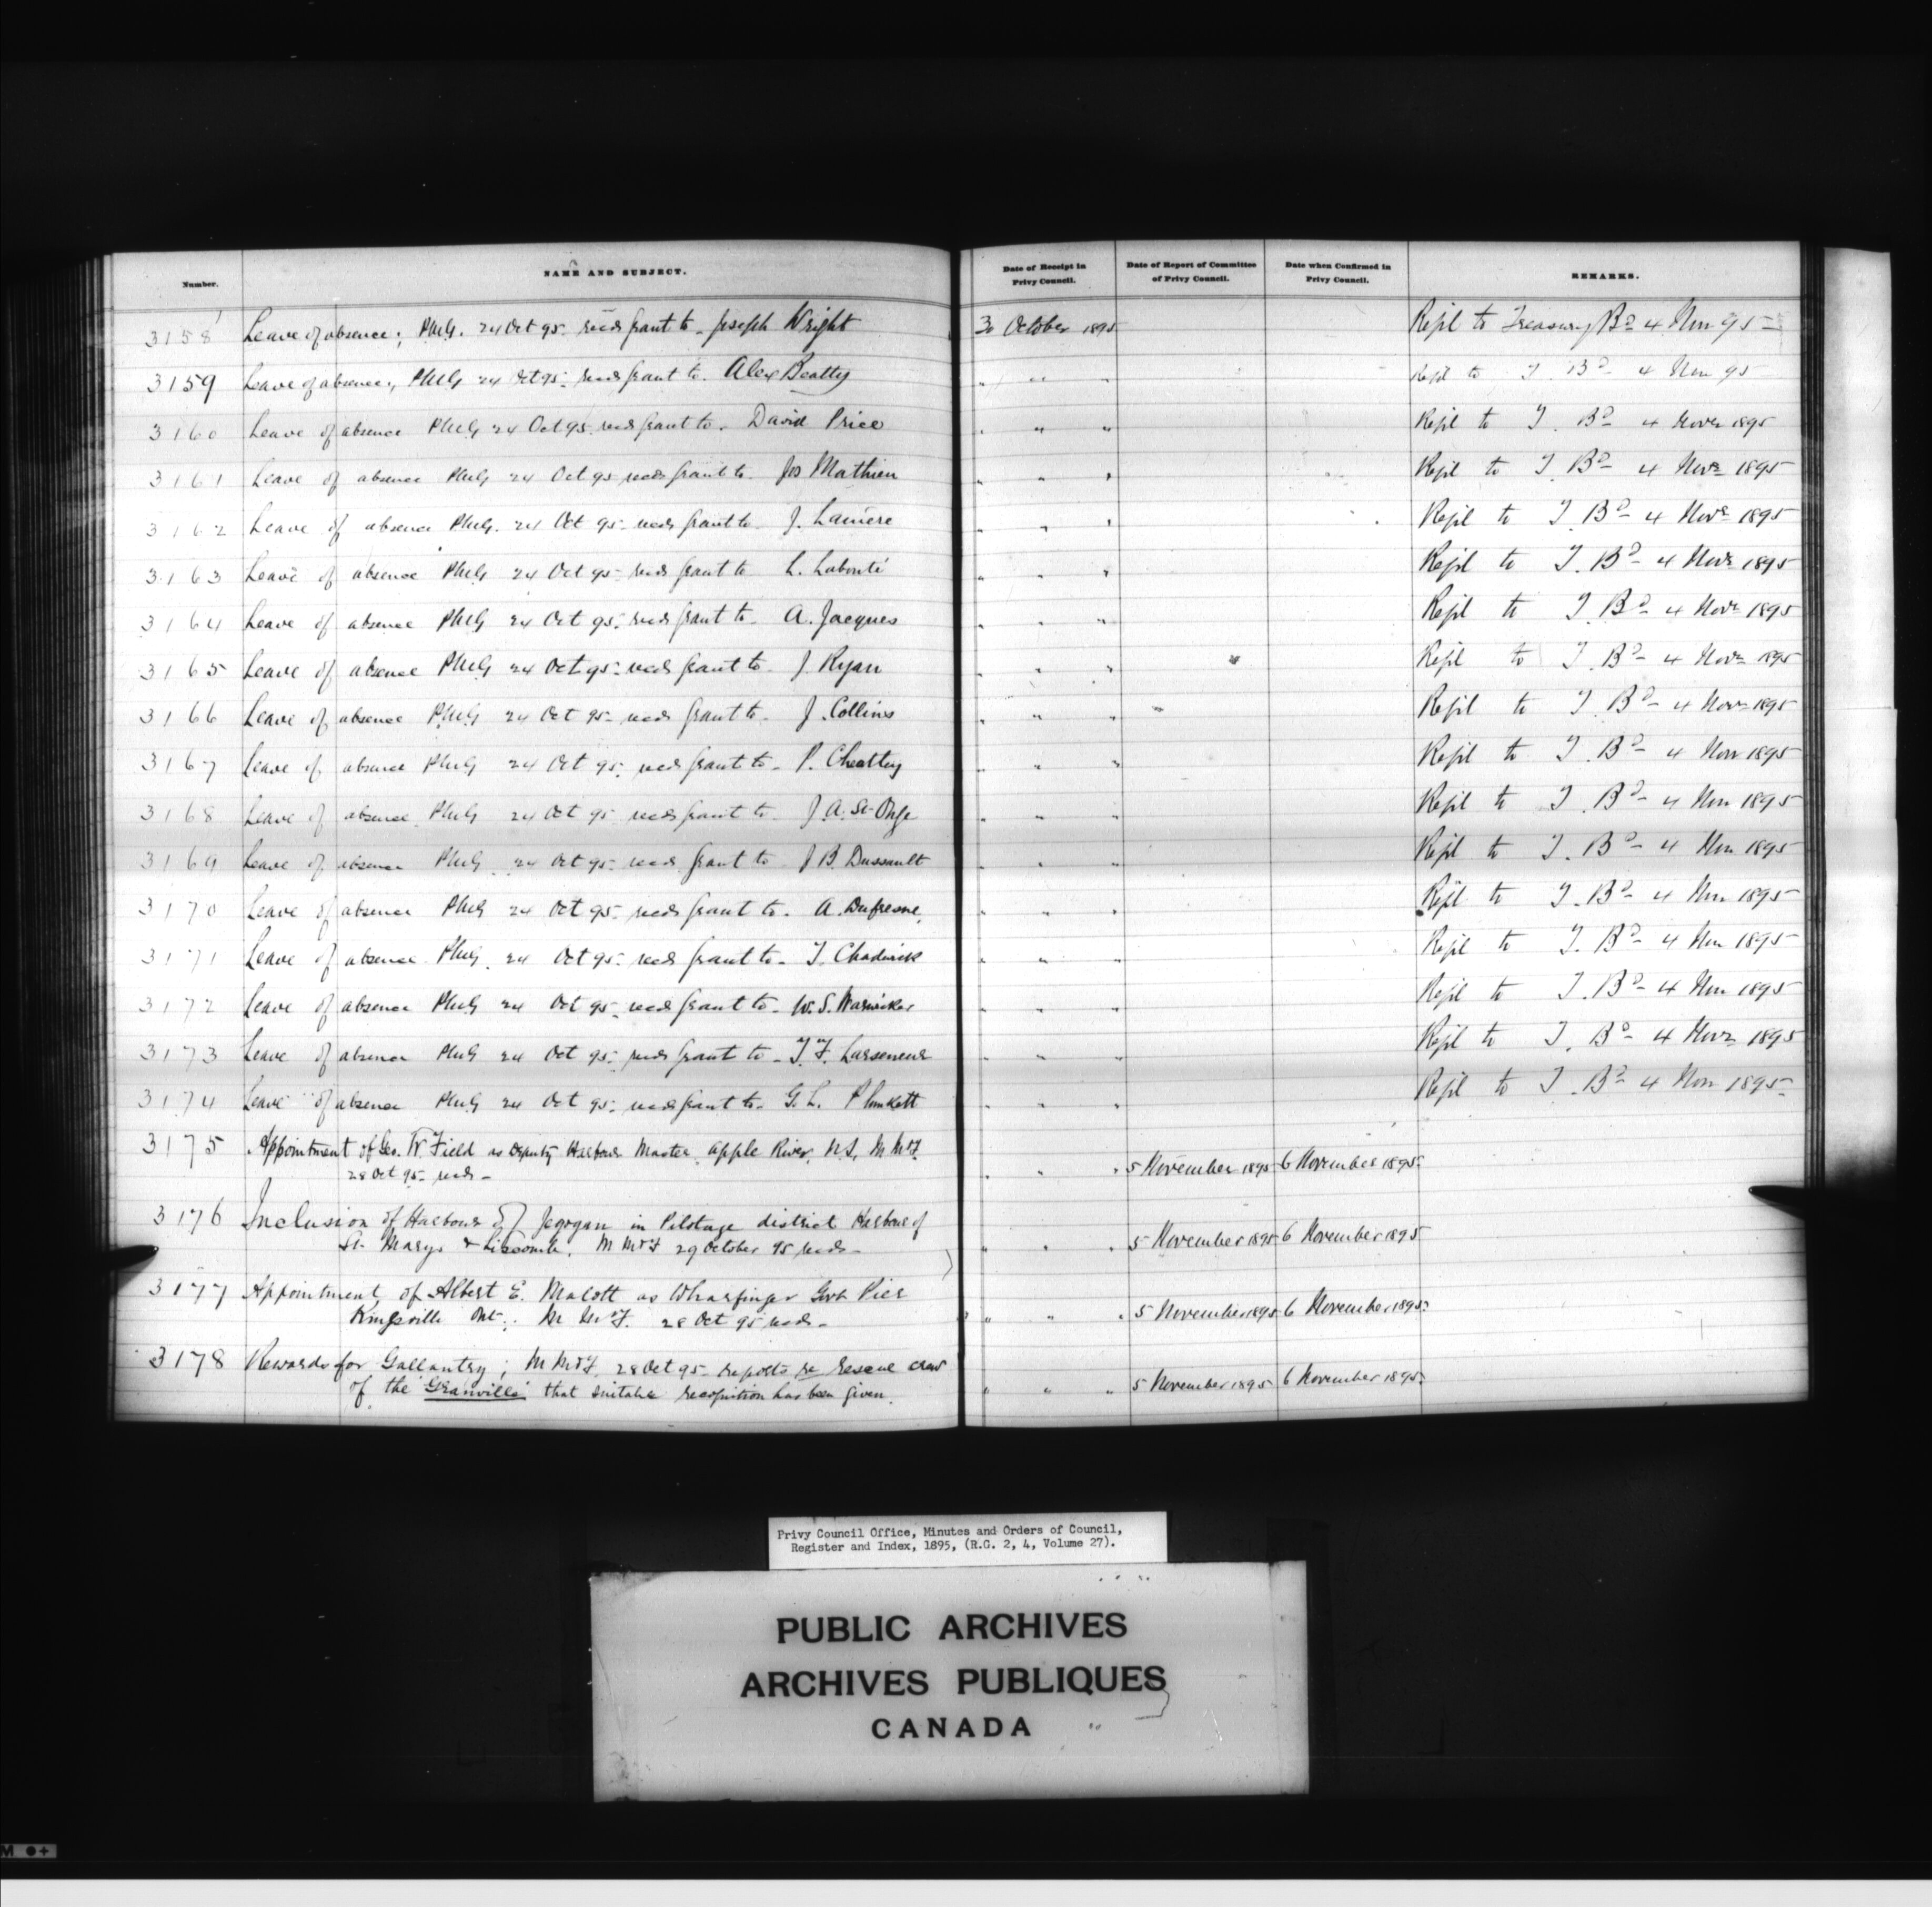 Number. NAME AND SUBJECT. Date of Receipt in Privy Council. Date of Report of Committee of Privy Council. Date when Confirmed in Privy Council. REMARKS.
3158 Leave of absence; PMG. 24 Oct 95 recds grant to Joseph Wright 30 October 1895 Refd to Treasury Bd 4 Nov 95
3159 Leave of absence; PMG 24 Oct 95 recds grant to. Alex Beatty " " " Refd to T. Bd 4 Nov 95
3160 Leave of absence PMG 24 Oct 95 recds grant to. David Price " " " Refd to T. Bd 4 Novr 1895
3161 Leave of absence PMG 24 Oct 95 recds grant to Jos Mathieu " " " Refd to T. Bd 4 Novr 1895
3162 Leave of absence PMG. 24 Oct 95 recds grant to J. " " " Refd to T. Bd 4 Novr 1895
3163 Leave of absence PMG 24 Oct 95 recds grant to L. Labonté " " " Refd to T. Bd 4 Novr 1895
3164 Leave of absence PMG 24 Oct 95 recds grant to A. Jacques " " " Refd to T. Bd 4 Novr 1895
3165 Leave of absence PMG 24 Oct 95 recds grant to J. Ryan " " " Refd to T. Bd 4 Novr 1895
3166 Leave of absence PMG 24 Oct 95 recds grant to J. Collins " " " Refd to T. Bd 4 Novr 1895
3167 Leave of absence PMG 24 Oct 95 recds grant to P. " " " Refd to T. Bd 4 Nov 1895
3168 Leave of absence PMG 24 Oct 95 recds grant to J. A. St Onge " " " Refd to T. Bd 4 Nov 1895
3169 Leave of absence PMG 24 Oct 95 recds grant to J B. Dussault " " " Refd to T. Bd 4 Nov 1895
3170 Leave of absence PMG 24 Oct 95 recds grant to. A. Dufresne " " " Refd to T. Bd 4 Nov 1895
3171 Leave of absence PMG 24 Oct 95 recds grant to T. Chadwick " " " Refd to T. Bd 4 Nov 1895
3172 Leave of absence PMG 24 Oct 95 recds grant to W. S. Warwicker " " " Refd to T. Bd 4 Nov 1895
3173 Leave of absence PMG 24 Oct 95 recds grant to T. F. " " " Refd to T. Bd 4 Novr 1895
3174 Leave of absence PMG 24 Oct 95 recds grant to G. L. Plunkett " " " Refd to T. Bd 4 Nov 1895
3175 Appointment of Geo. W. Field as Deputy Harbour Master, Apple River, N.S. M M&F.
28 Oct 95 recds " " " 5 November 1895 6 November 1895
3176 Inclusion of Harbour of Jegogan in Pilotage district Harbour of
St Marys & Liscomb. M M&F 29 October 95 recds " " " 5 November 1895 6 November 1895
3177 Appointment of Albert E. Malott as Wharfinger Govt Pier
Kingsville Ont. M M&F. 28 Oct 95 recds " " " 5 November 1895 6 November 1895
3178 Rewards for Gallantry; M M&F 28 Oct 95 reports re rescue crew
of the "Granville" that suitable recognition has been given. " " " 5 November 1895 6 November 1895
Privy Council Office, Minutes and Orders of Council,
Register and Index, 1895, (R.G. 2, 4, Volume 27).
PUBLIC ARCHIVES
ARCHIVES PUBLIQUES
CANADA